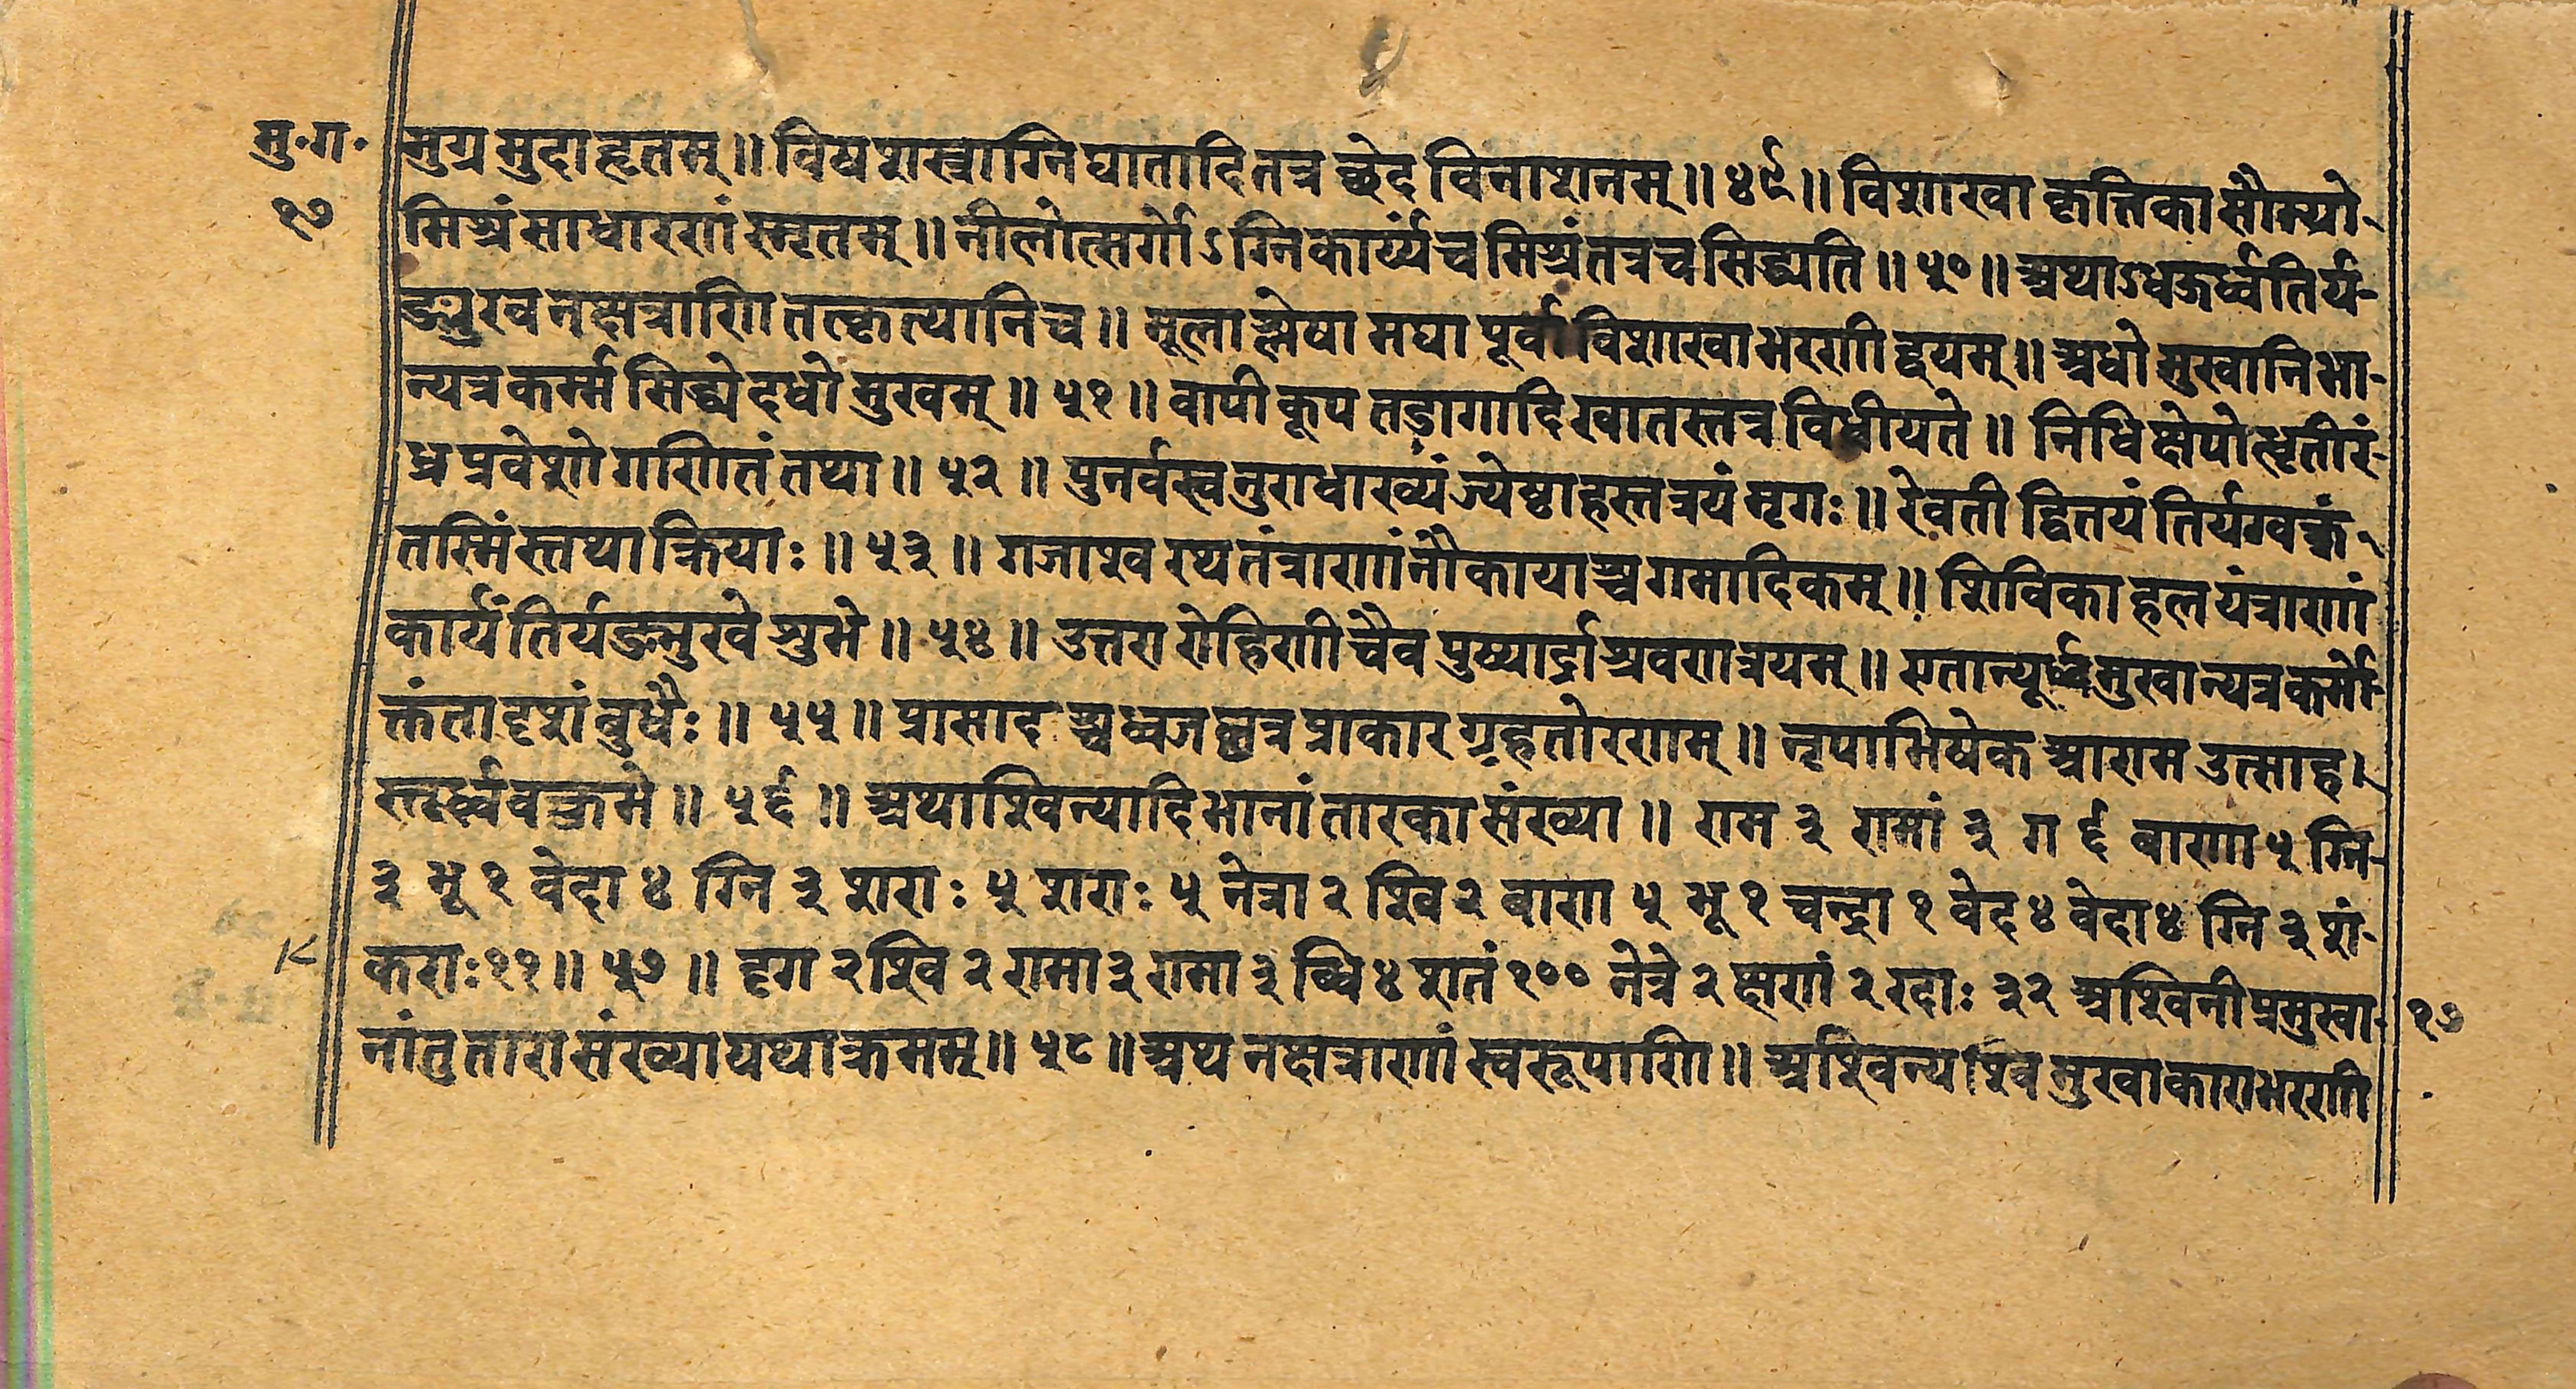 मु॰ग॰ मुग्र मुदाहृतम् ॥ विषशस्त्राग्निघातादि तत्र च्छेद विनाशनम् ॥ ४९ ॥ विशाखा कृत्तिका सौम्यो-
१७ मिश्रं साधारणं स्मृतम् ॥ नीलोत्सर्गोऽग्निकार्य्यं च मिश्रं तत्र च सिद्ध्यति ॥ ५० ॥ अथाऽधऊर्ध्वतिर्य-
ङ्मुख नक्षत्राणि तत्कृत्यानि च ॥ मूलाश्लेषा मघा पूर्वा विशाखा भरणी द्वयम् ॥ अधो मुखानि भा-
न्यत्र कर्म्म सिद्ध्येदधो मुखम् ॥ ५१ ॥ वापी कूप तडागादि खातस्तत्र विधीयते ॥ निधि क्षेपोत्धृतीरं-
ध्र प्रवेशो गणितं तथा ॥ ५२ ॥ पुनर्वस्वनुराधाख्यं ज्येष्ठा हस्तत्रयं मृगः ॥ रेवती द्वितयं तिर्यग्वक्त्रं
तस्मिंस्तथा क्रियाः ॥ ५३ ॥ गजाश्व रथ तंत्राणां नौकायाश्च गमादिकम् ॥ शिविका हल यंत्राणां
कार्यं तिर्यङ्मुखे शुभे ॥ ५४ ॥ उत्तरा रोहिणी चैव पुष्यार्द्रा श्रवणत्रयम् ॥ एतान्यूर्ध्वमुखान्यत्र कर्मो-
क्तं तादृशं बुधैः ॥ ५५ ॥ प्रासादश्च ध्वजच्छत्र प्राकार गृहतोरणम् ॥ नृपाभिषेक आराम उत्साह।
स्तूर्ध्ववक्त्रभे ॥ ५६ ॥ अथाश्विन्यादि भानां तारका संख्या ॥ राम ३ रामां ३ ग ६ बाणा ५ ग्नि-
३ भू १ वेदा ४ ग्नि ३ शराः ५ शराः ५ नेत्रा २ श्वि २ बाण ५ भू १ चन्द्रा १ वेद ४ वेदा ४ ग्नि ३ शं-
कराः ११ ॥ ५७ ॥ दृग २ श्वि २ रामा ३ रामा ३ ब्धि ४ शतं १०० नेत्रे २ क्षणं २ रदाः ३२ अश्विनी प्रमुखा- १७
नांतु तारा संख्या यथाक्रमम् ॥ ५८ ॥ अथ नक्षत्राणां स्वरूपाणि ॥ अश्विन्यश्वि मुखाकारा भरणी